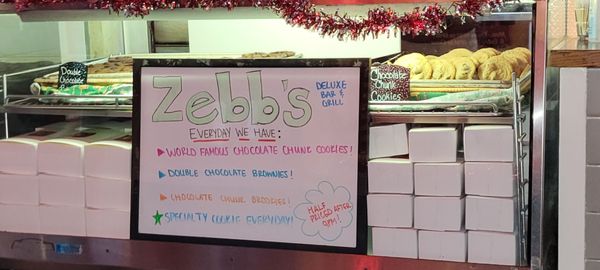 Double
Chocolate
Brownies
Zebb's
DELUXE
BAR &
GRILL
EVERYDAY WE HAVE:
WORLD FAMOUS CHOCOLATE CHUNK COOKIES!
DOUBLE CHOCOLATE BROWNIES!
CHOCOLATE CHUNK BROOKIES!
SPECIALTY COOKIE EVERYDAY!
HALF
PRICED AFTER
9PM!
CHOCOLATE
CHUNK
COOKIES